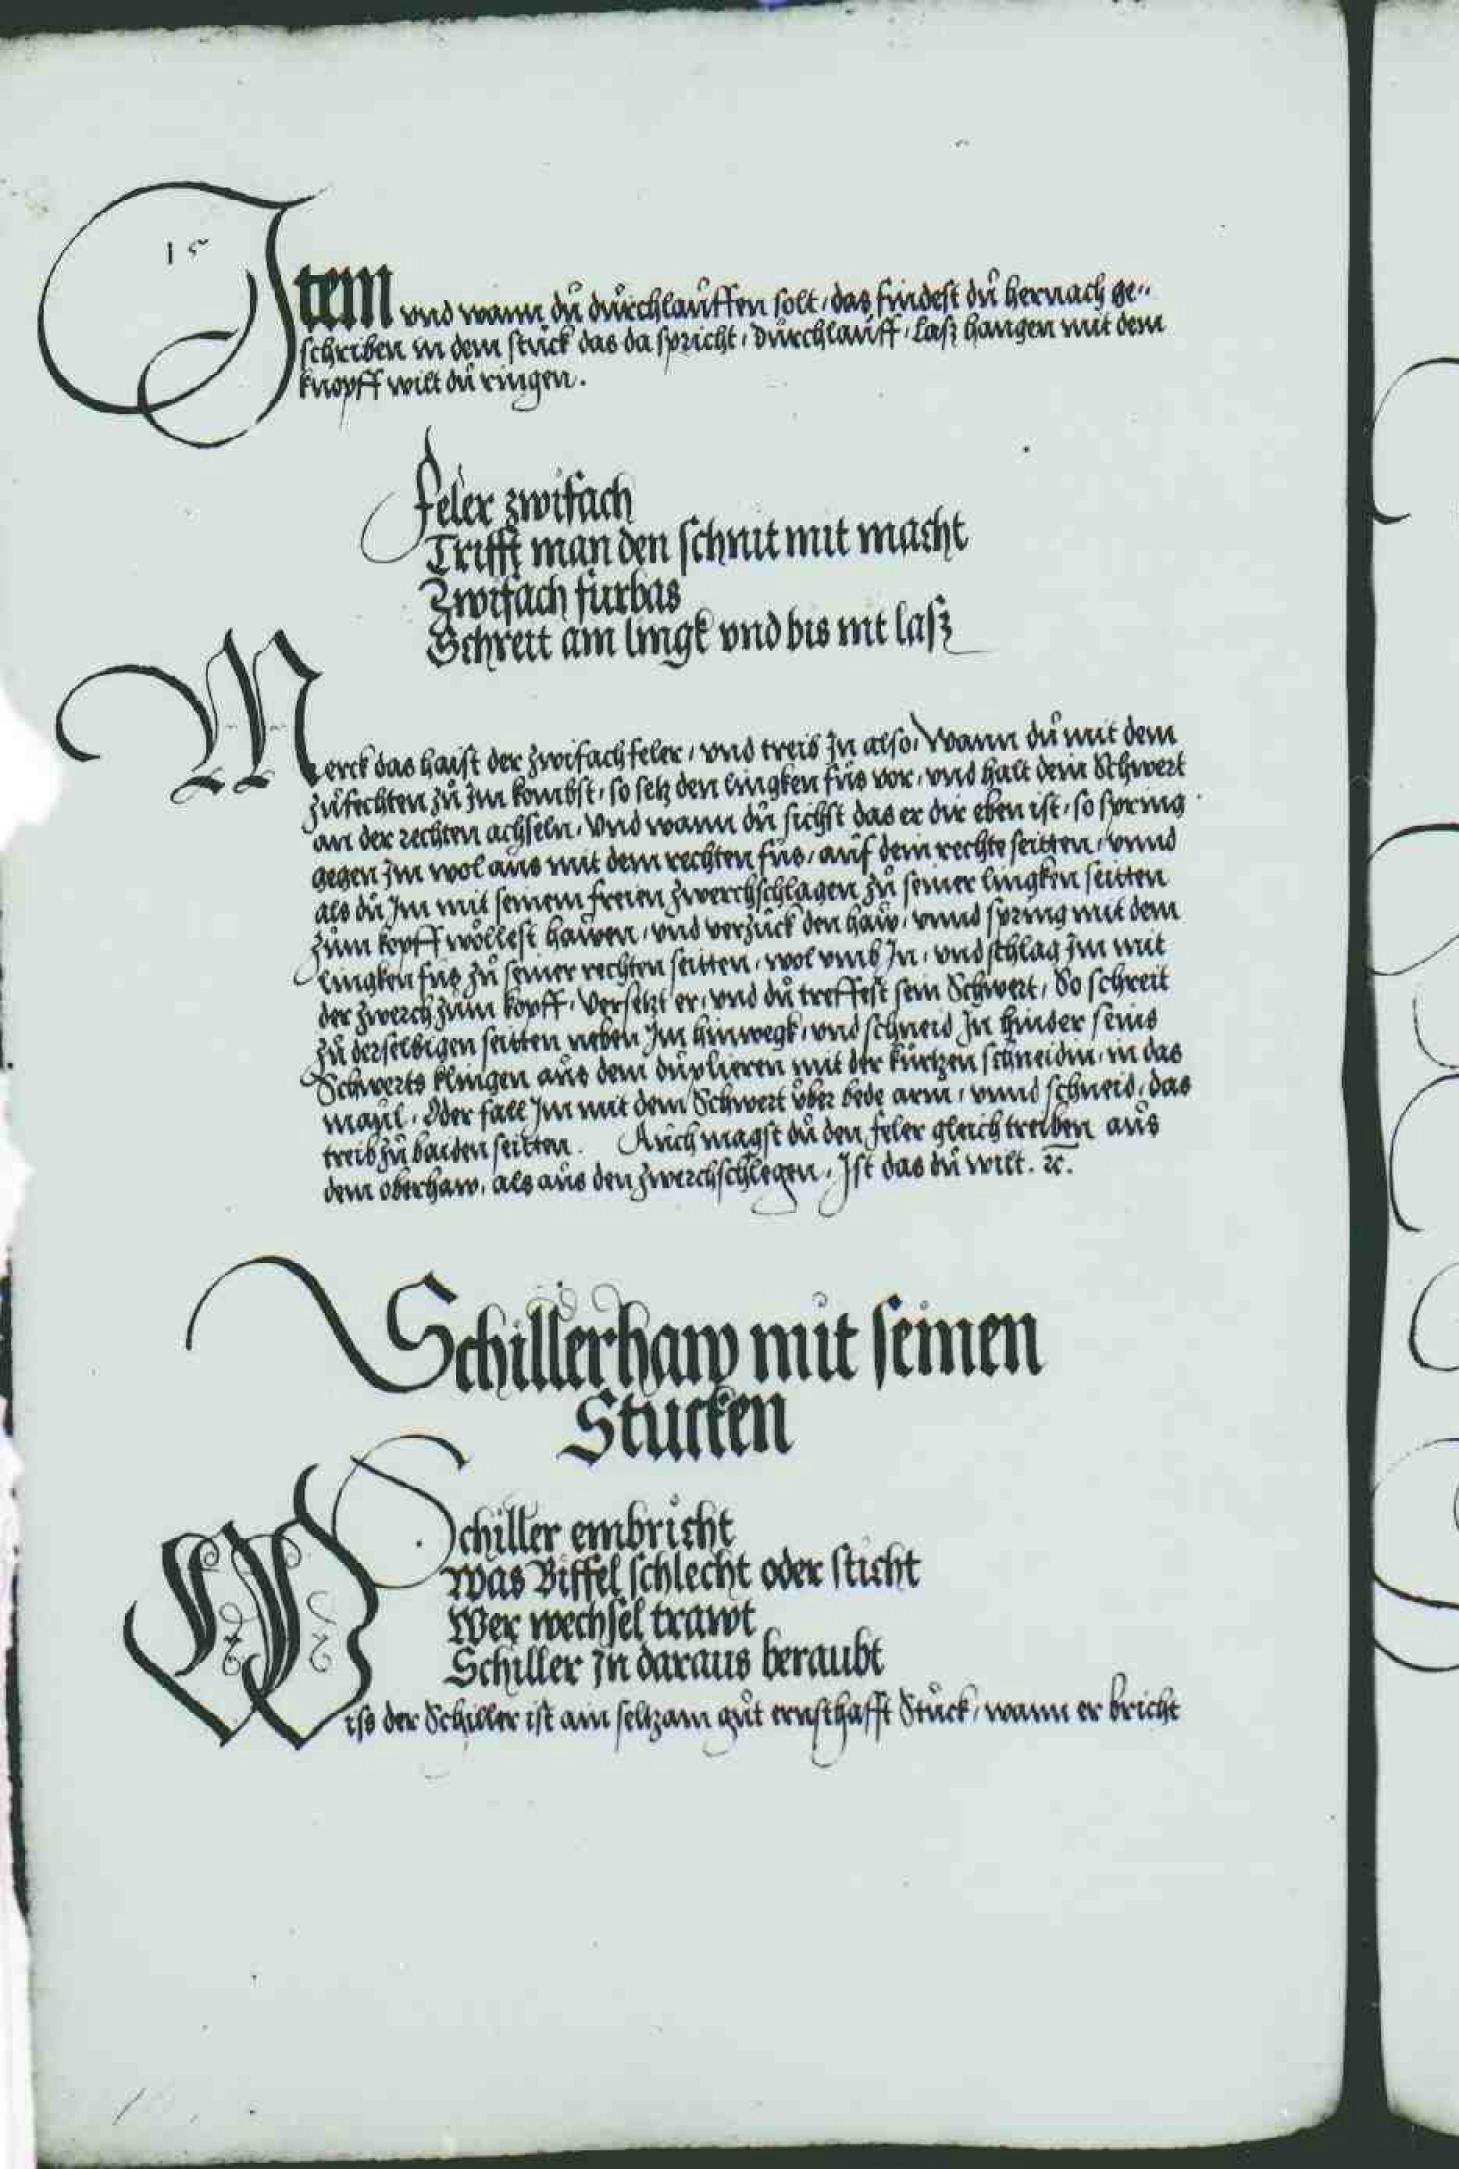 15
Item vnd wann du durchlauffen solt, das findest du hernach ge-
schriben in dem stuck das da spricht, Durchlauff, lasz hangen mit dem
knopff wilt du ringen.
Feler zwifach
Trifft man den schnit mit macht
Zwifach furbas
Schreit am lingk vnd bis nit lasz
Merck das haist der zwifach feler, vnd treib In also, Wann dů mit dem
zůfechten zů Im kombst, so setz den lingken fůs vor, vnd halt dein Schwert
an der rechten achseln, Vnd wann dů sichst das er dir eben ist, so spring
gegen Im wol aus mit dem rechten fůs, auf dein rechte seitten, vnnd
als dů Im mit seinem freien zwerchschlagen zů seiner lingken seitten
zům kopff wöllest hawen, vnd verzuck den haw, vnnd spring mit dem
lingken fus zů seiner rechten seitten, wol vmb In, vnd schlag Im mit
der zwerch zům kopff, Versetzt er, vnd dů treffest sein Schwert, So schreit
zů derselbigen seitten neben Im hinwegk, vnd schneid In hinder seins
Schwerts klingen aus dem duplieren mit der kurtzen schneidin, in das
maul, Oder fall Im mit dem Schwert vber bede arm, vnnd schneid, das
treib zů baiden seitten. Auch magst dů den feler gleich treiben aůs
dem oberhaw, als aůs den zwerchschlegen, Ist das dů wilt. ꝛc.
Schillerhaw mit seinen
Stucken
Schiller einbricht
Was Biffel schlecht oder sticht
Wer wechsel trawt
Schiller In daraus beraubt
Wiss der Schiller ist ain seltzam gůt ernsthafft Stůck, wann er bricht